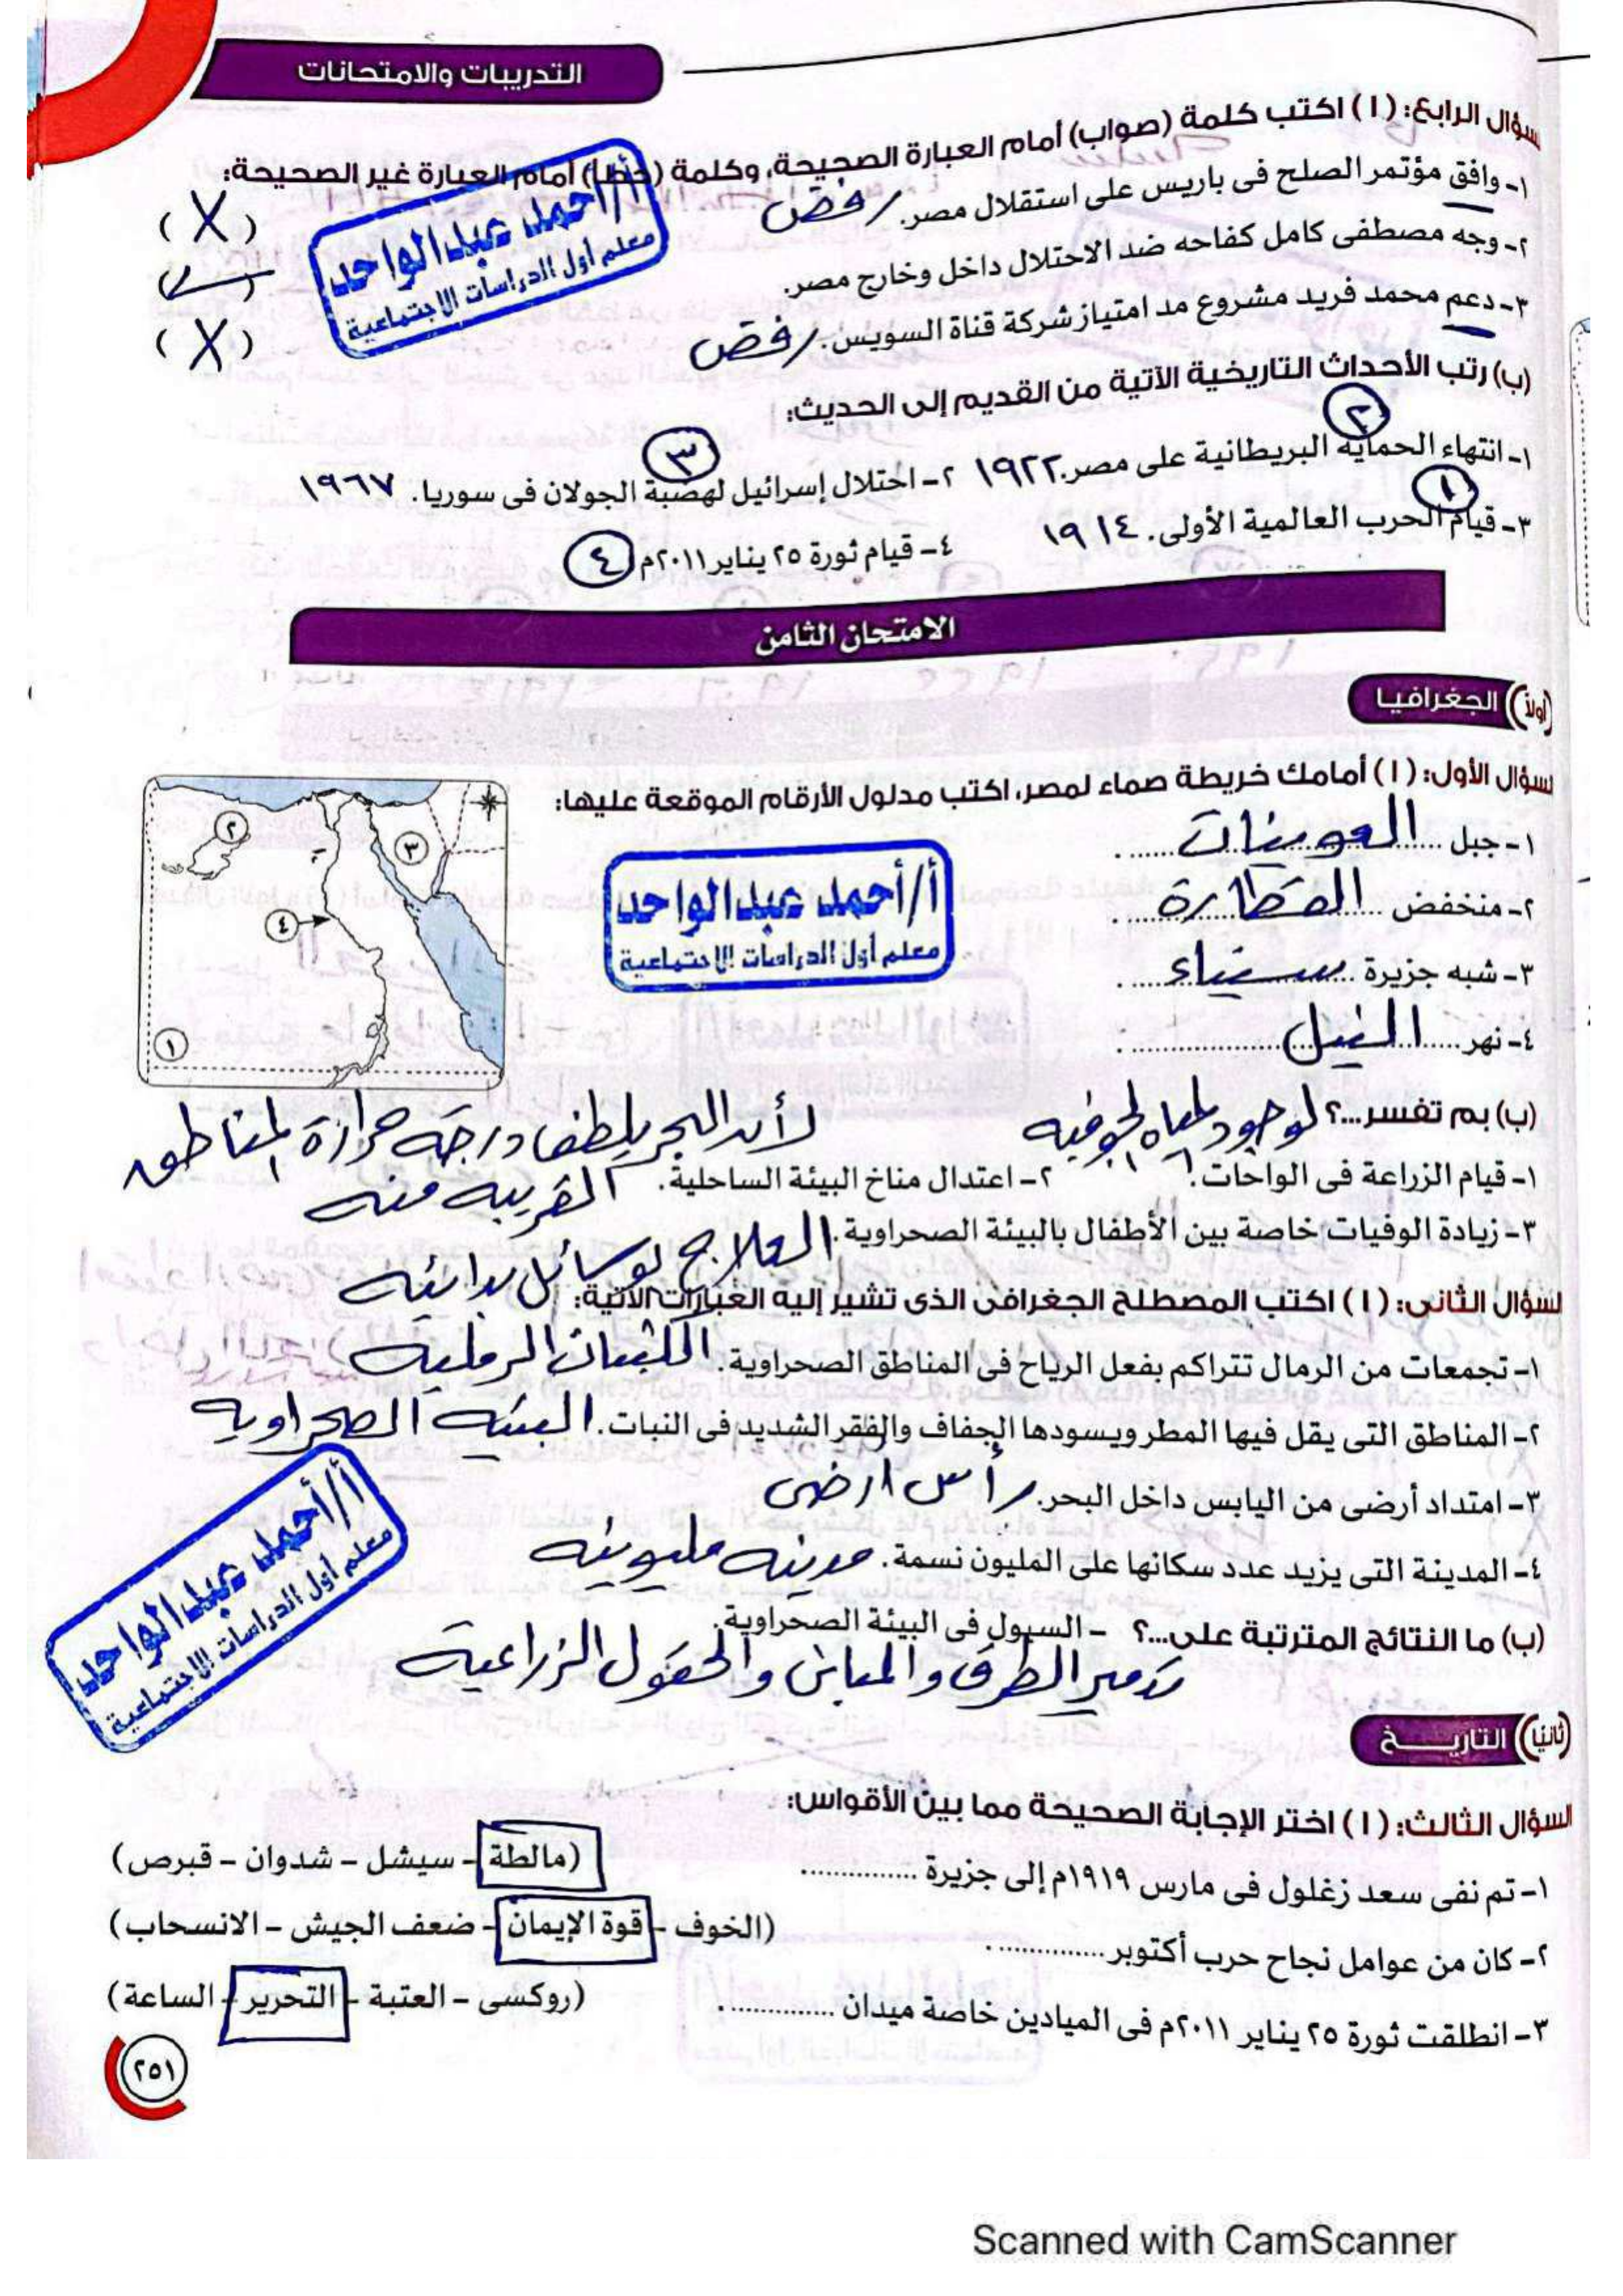 التدريبات والامتحانات
السؤال الرابع: (١) اكتب كلمة (صواب) أمام العبارة الصحيحة، وكلمة (خطأ) أمام العبارة غير الصحيحة:
١- وافق مؤتمر الصلح فى باريس على استقلال مصر. رفض (X)
٢- وجه مصطفى كامل كفاحه ضد الاحتلال داخل وخارج مصر. (✓)
٣- دعم محمد فريد مشروع مد امتياز شركة قناة السويس. رفض (X)
أ/أحمد عبدالواحد
معلم أول الدراسات الاجتماعية
(ب) رتب الأحداث التاريخية الآتية من القديم إلى الحديث:
١- انتهاء الحماية البريطانية على مصر. ١٩٢٢ ٢ ٢- احتلال إسرائيل لهضبة الجولان فى سوريا. ١٩٦٧ ٣
٣- قيام الحرب العالمية الأولى. ١٩١٤ ١ ٤- قيام ثورة ٢٥ يناير ٢٠١١م ٤
الامتحان الثامن
(أولاً) الجغرافيا
السؤال الأول: (١) أمامك خريطة صماء لمصر، اكتب مدلول الأرقام الموقعة عليها:
١- جبل العوينات
٢- منخفض القطارة
٣- شبه جزيرة سيناء
٤- نهر النيل
أ/أحمد عبدالواحد
معلم أول الدراسات الاجتماعية
٢
٣
٤
١
(ب) بم تفسر...؟ لوجود المياه الجوفيه لأن البحر يلطف درجة حرارة المناطق
١- قيام الزراعة فى الواحات. ٢- اعتدال مناخ البيئة الساحلية. القريبه منه
٣- زيادة الوفيات خاصة بين الأطفال بالبيئة الصحراوية. العلاج بوسائل بدائيه
السؤال الثانى: (١) اكتب المصطلح الجغرافى الذى تشير إليه العبارات الآتية:
١- تجمعات من الرمال تتراكم بفعل الرياح فى المناطق الصحراوية. الكثبان الرمليه
٢- المناطق التى يقل فيها المطر ويسودها الجفاف والفقر الشديد فى النبات. البيئه الصحراويه
٣- امتداد أرضى من اليابس داخل البحر. رأس ارضى
٤- المدينة التى يزيد عدد سكانها على المليون نسمة. مدينه مليونيه
(ب) ما النتائج المترتبة على...؟ - السيول فى البيئة الصحراوية.
تدمير الطرق والمبانى والحقول الزراعية
أ/أحمد عبدالواحد
معلم أول الدراسات الاجتماعية
(ثانيًا) التاريخ
السؤال الثالث: (١) اختر الإجابة الصحيحة مما بين الأقواس:
١- تم نفى سعد زغلول فى مارس ١٩١٩م إلى جزيرة .............. (مالطة - سيشل - شدوان - قبرص)
٢- كان من عوامل نجاح حرب أكتوبر .............. (الخوف - قوة الإيمان - ضعف الجيش - الانسحاب)
٣- انطلقت ثورة ٢٥ يناير ٢٠١١م فى الميادين خاصة ميدان .............. (روكسى - العتبة - التحرير - الساعة)
٢٥١
Scanned with CamScanner